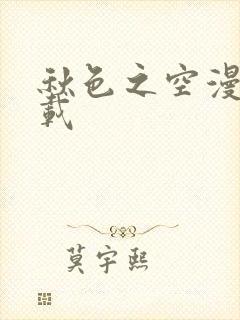 秋色之空漫
载
莫宇熙